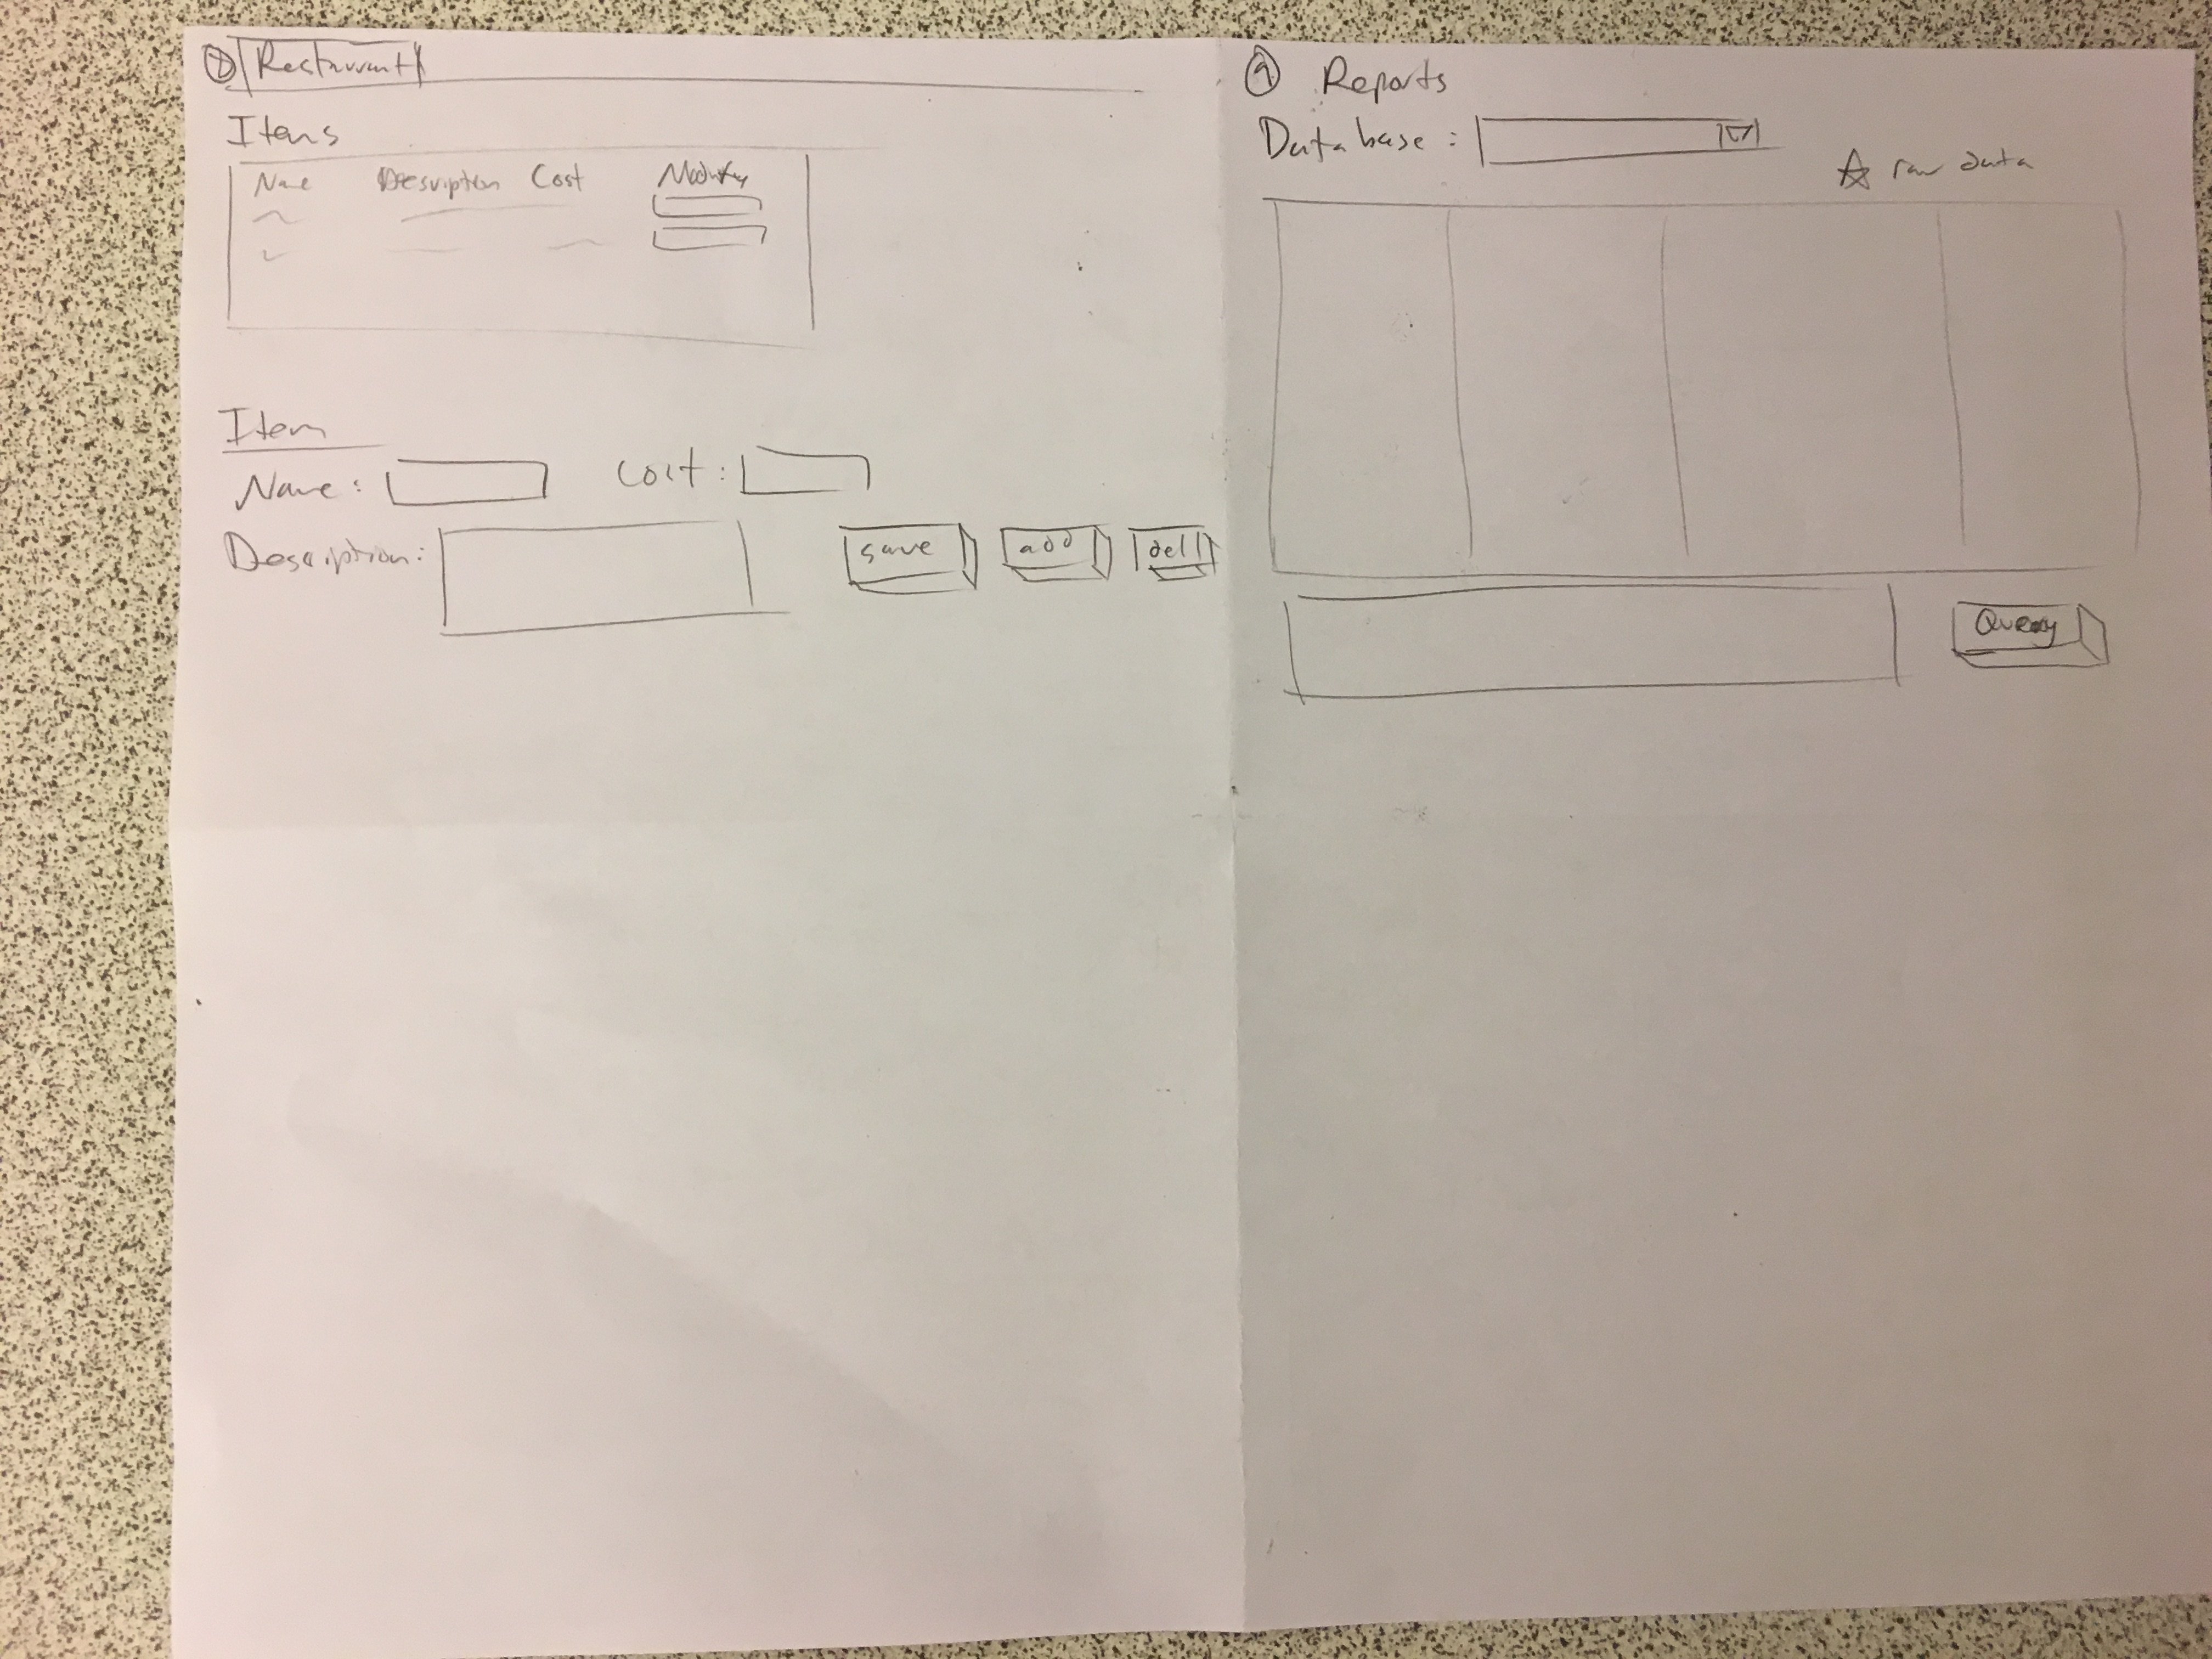 Restaurant
Items
Name Description Cost Modify
Item
Name: Cost:
Description: save add del
Reports
Database:
☆ raw data
Query